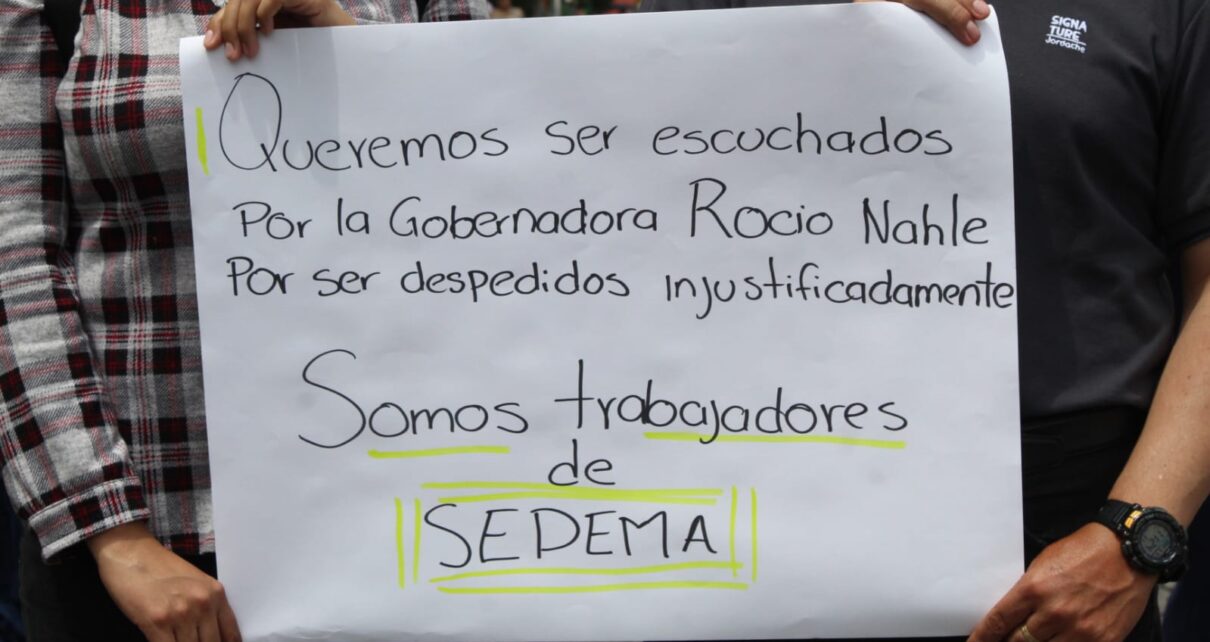 Queremos ser escuchados
Por la Gobernadora Rocio Nahle
Por ser despedidos injustificadamente
Somos trabajadores
de
SEDEMA
SIGNA
TURE
Jordache